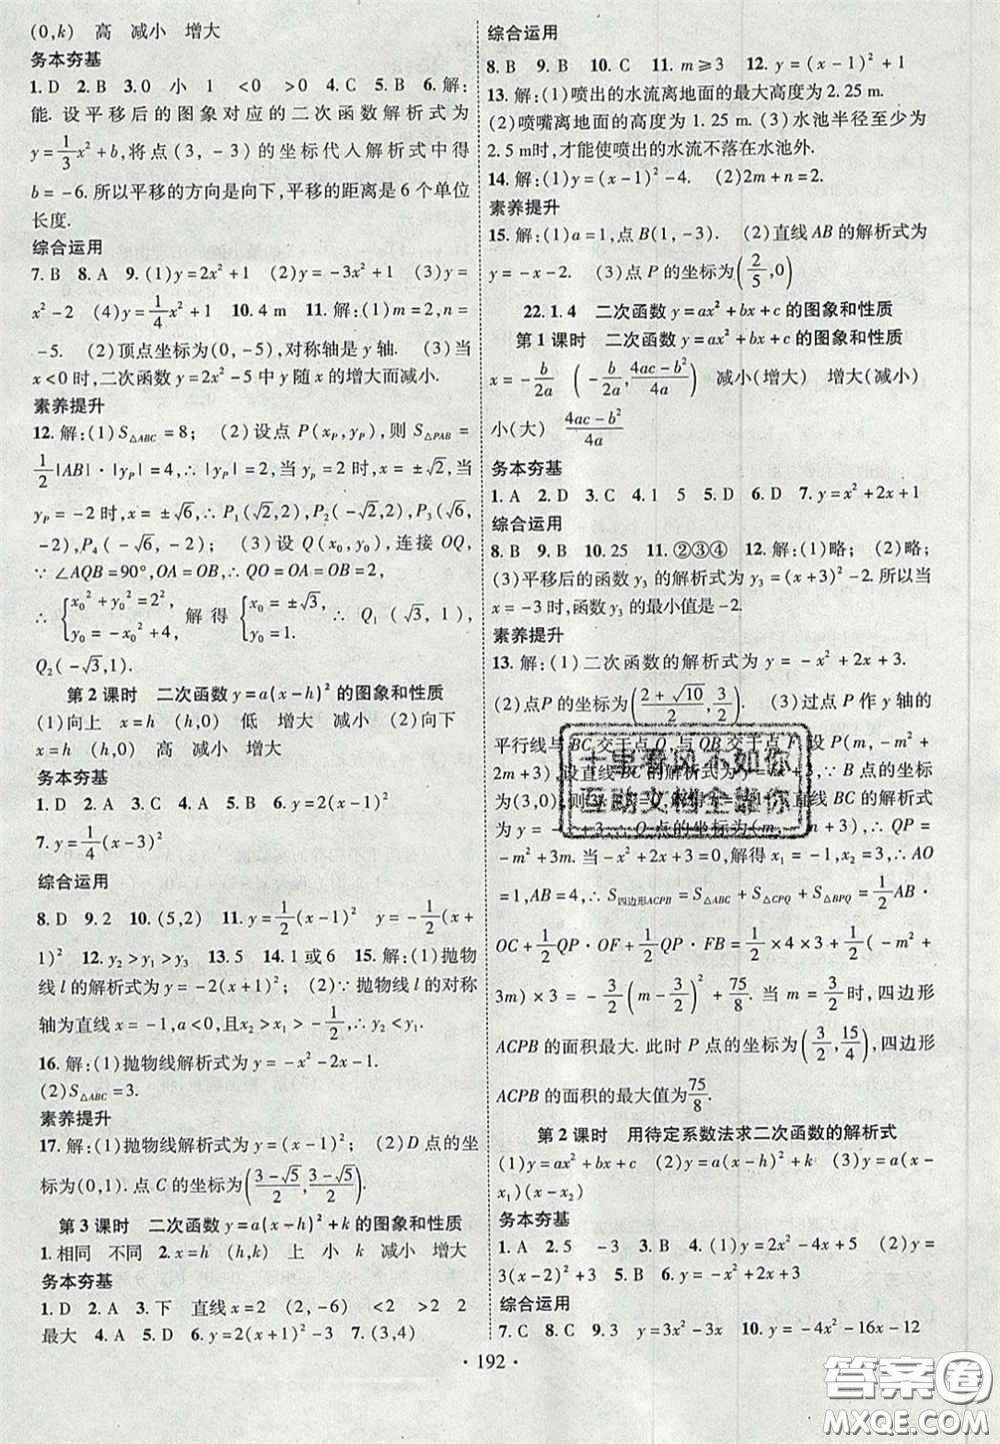 (0,k) 高 减小 增大
务本夯基
1. D 2. B 3. 0 小 1 <0 >0 4. C 5. B 6. 解:
能. 设平移后的图象对应的二次函数解析式为
y=\frac{1}{3}x²+b,将点(3,-3)的坐标代人解析式中得
b=-6. 所以平移的方向是向下,平移的距离是6个单位
长度.
综合运用
7. B 8. A 9. (1)y=2x²+1 (2)y=-3x²+1 (3)y=
x²-2 (4)y=\frac{1}{4}x²+1 10. 4 11. 解:(1)m=2,n=
-5. (2)顶点坐标为(0,-5),对称轴是y轴. (3)当
x<0时,二次函数y=2x²-5中y随x的增大而减小.
素养提升
12. 解:(1)S△ABC=8; (2)设点P(x_P,y_P),则S△PAB=
\frac{1}{2}|AB|·|y_P|=4,∴|y_P|=2,当y_p=2时,x=±√2,当
y_P=-2时,x=±√6,∴P₁(√2,2),P₂(-√2,2),P₃(√6,
-2),P₄(-√6,-2); (3)设Q(x₀,y₀),连接OQ,
∵∠AQB=90°,OA=OB,∴QO=OA=OB=2,
∴{x₀²+y₀²=2², y₀=-x₀²+4, 解得{x₀=±√3, y₀=1. ∴Q₁(√3,1),
Q₂(-√3,1).
第2课时 二次函数y=a(x-h)²的图象和性质
(1)向上 x=h (h,0) 低 增大 减小 (2)向下
x=h (h,0) 高 减小 增大
务本夯基
1. D 2. A 3. C 4. D 5. > 6. y=(x+2)²
7. y=\frac{1}{4}(x-3)²
综合运用
8. D 9. 2 10. (5,2) 11. y=\frac{1}{2}(x-1)² y=-\frac{1}{2}(x+
1)² 12. y₂>y₁>y₃ 13. 5 14. 1或6 15. 解:(1)抛物
线l的解析式为y=-2(x+1)²; (2)∵抛物线l的对称
轴为直线x=-1,a<0,且x₂>x₁>-1,∴y₂<y₁.
16. 解:(1)抛物线解析式为y=-x²-2x-1.
(2)S△ABC=3.
素养提升
17. 解:(1)抛物线解析式为y=(x-1)² (2)D点的坐
标为(0,1). 点C的坐标为(\frac{3-√5}{2},\frac{3-√5}{2}).
第3课时 二次函数y=a(x-h)²+k的图象和性质
1. 相同 不同 2. x=h (h,k) 上 小 k 减小 增大
务本夯基
1. D 2. A 3. 下 直线x=2 (2,-6) <2 >2 2
最大 4. A 5. D 6. y=2(x+1)²-3 7. (3,4)
综合运用
8. B 9. B 10. C 11. m≥3 12. y=(x-1)²+1
13. 解:(1)喷出的水流离地面的最大高度为2.25 m.
(2)喷嘴离地面的高度为1.25 m. (3)水池半径至少为
2.5 m时,才能使喷出的水流不落在水池外.
14. 解:(1)y=(x-1)²-4. (2)2m+n=2.
素养提升
15. 解:(1)a=1,点B(1,-3). (2)直线AB的解析式为
y=-x-2. (3)点P的坐标为(\frac{2}{5},0)
22.1.4 二次函数y=ax²+bx+c的图象和性质
第1课时 二次函数y=ax²+bx+c的图象和性质
x=-\frac{b}{2a} (-\frac{b}{2a},\frac{4ac-b²}{4a}) 减小(增大) 增大(减小)
小(大) \frac{4ac-b²}{4a}
务本夯基
1. A 2. D 3. C 4. 1 5 5. D 6. D 7. y=x²+2x+1
综合运用
8. B 9. B 10. 25 11. ②③④ 12. 解:(1)略; (2)略;
(3)平移后的函数y₃的解析式为y₃=(x+3)²-2. 所以当
x=-3时,函数y₃的最小值是-2.
素养提升
13. 解:(1)二次函数的解析式为y=-x²+2x+3.
(2)点P的坐标为(\frac{2+√10}{2},\frac{3}{2}) (3)过点P作y轴的
平行线与BC交于点Q,与OB交于点F,设P(m,-m²+
2m+3),设直线BC的解析式为
(3,0),则 直线BC的解析式为
y=-x+3. ∴Q点的坐标为(m,-m+3),∴QP=
-m²+3m. 当-x²+2x+3=0,解得x₁=-1,x₂=3,∴AO
=1,AB=4,∴S四边形ACPB=S△ABQ+S△CPQ+S△BPQ=\frac{1}{2}AB·
OC+\frac{1}{2}QP·OF+\frac{1}{2}QP·FB=\frac{1}{2}×4×3+\frac{1}{2}(-m²+
3m)×3=-\frac{3}{2}(m-\frac{3}{2})²+\frac{75}{8}. 当m=\frac{3}{2}时,四边形
ACPB的面积最大. 此时P点的坐标为(\frac{3}{2},\frac{15}{4}),四边形
ACPB的面积的最大值为\frac{75}{8}.
第2课时 用待定系数法求二次函数的解析式
(1)y=ax²+bx+c (2)y=a(x-h)²+k (3)y=a(x-
x₁)(x-x₂)
务本夯基
1. A 2. 5 -3 3. B 4. (1)y=2x²-4x+5 (2)y=
3(x-2)² 5. B 6. y=-x²+2x+3
综合运用
7. C 8. C 9. 3 y=3x²-3x 10. y=-4x²-16x-12
· 192 ·
干事看风不如你
互助文档全靠你
答案圈
MXQE.COM